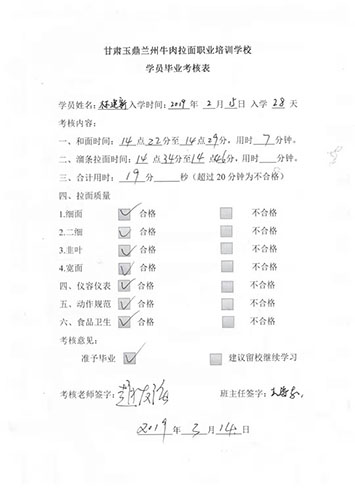 甘肃玉鼎兰州牛肉拉面职业培训学校
学员毕业考核表
学员姓名:林建新入学时间:2019 年 2 月 15 日 入学 28 天
考核内容:
一、和面时间: 14 点 22 分至 14 点 29 分, 用时 7 分钟。
二、溜条拉面时间: 14 点 34 分至 14 点 46 分, 用时 分钟。
三、合计用时: 19 分 秒(超过 20 分钟为不合格)
四、拉面质量
1.细面 ✓ 合格 不合格
2.二细 ✓ 合格 不合格
3.韭叶 ✓ 合格 不合格
4.宽面 ✓ 合格 不合格
四、仪容仪表 ✓ 合格 不合格
五、动作规范 ✓ 合格 不合格
六、食品卫生 ✓ 合格 不合格
考核意见:
准予毕业 ✓ 建议留校继续学习
考核老师签字: 班主任签字:
2019 年 3 月 14 日